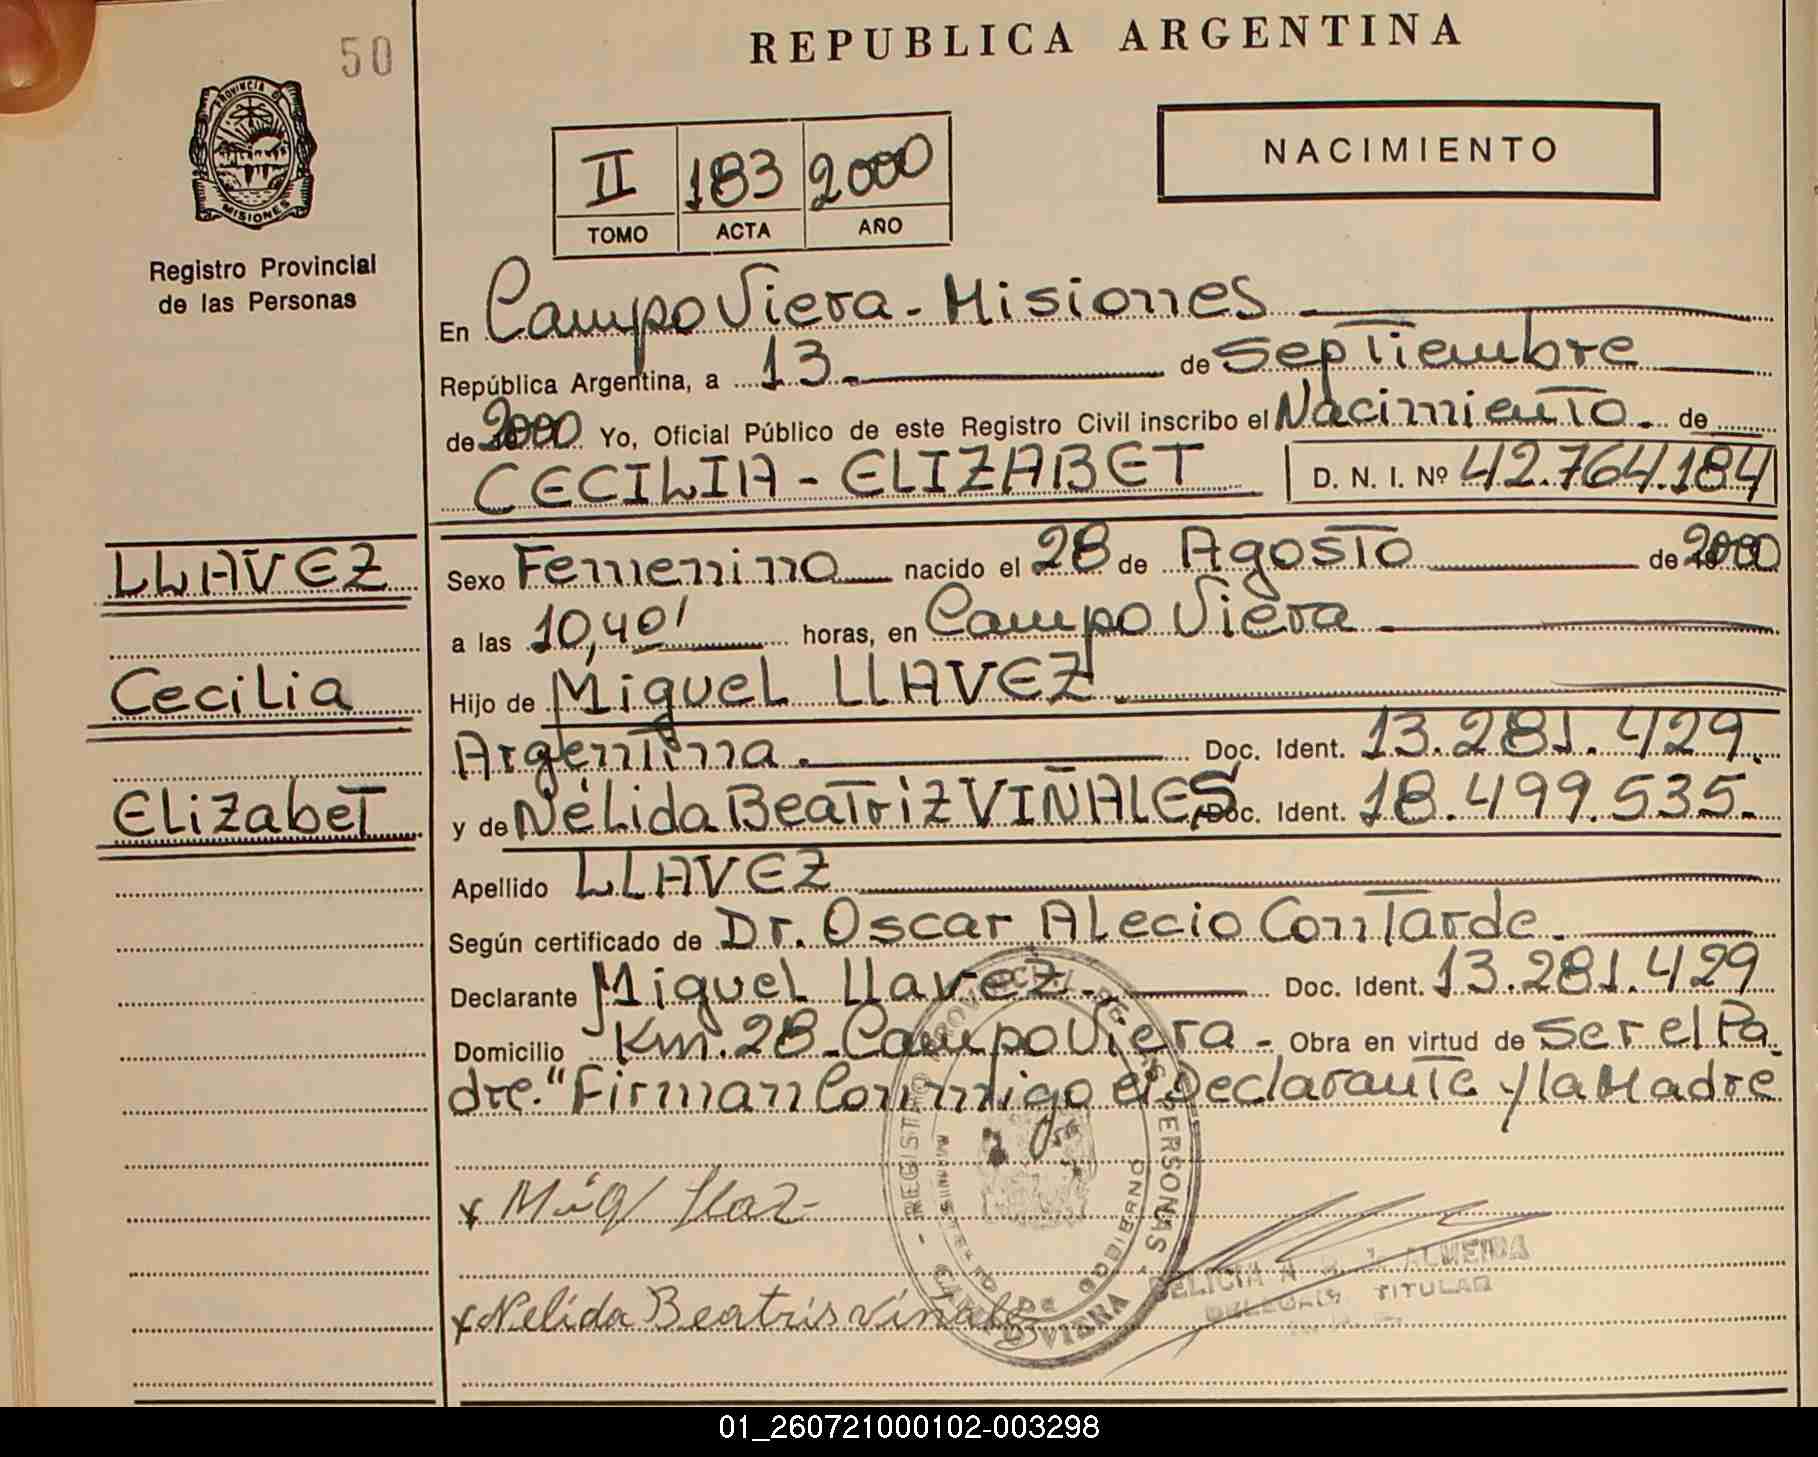 50
REPUBLICA ARGENTINA
PROVINCIA D
MISIONES
Registro Provincial
de las Personas
II 183 2000
TOMO ACTA AÑO
NACIMIENTO
En Campo Viera - Misiones
República Argentina, a 13 de Septiembre
de 2000 Yo, Oficial Público de este Registro Civil inscribo el Nacimiento de
CECILIA - ELIZABET D. N. I. Nº 42.764.184
LLAVEZ
Sexo Femenino nacido el 28 de Agosto de 2000
a las 10,40' horas, en Campo Viera
Cecilia
Hijo de Miguel LLAVEZ
Argentina. Doc. Ident. 13.281.429.
Elizabet
y de Nélida Beatriz VIÑALES, Doc. Ident. 18.499.535.
Apellido LLAVEZ
Según certificado de Dr. Oscar Alecio Contarde.
Declarante Miguel Llavez Doc. Ident. 13.281.429
Domicilio Km. 28 - Campo Viera - Obra en virtud de Ser el Pa-
dre." Firman Conmigo el Declarante y la Madre
x
x Nelida Beatris Viñale
REGISTRO PROVINCIAL DE LAS PERSONAS
MINISTERIO DE GOBIERNO
VIERA
ALMEIDA
TITULAR
01_260721000102-003298